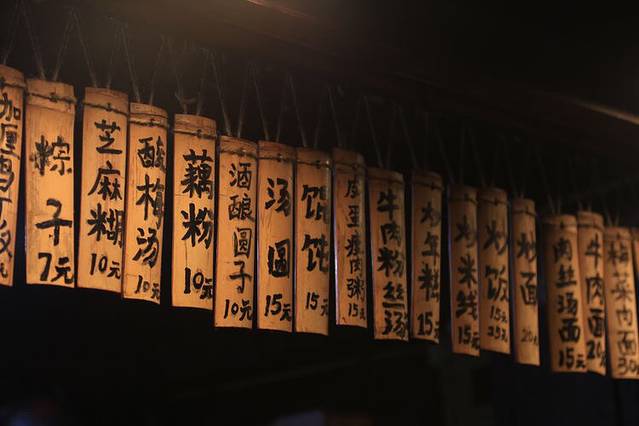 咖喱鸟丁饭
粽子
7元
芝麻糊
10元
酸梅汤
10元
藕粉
10元
酒酿圆子
10元
汤圆
15元
馄饨
15元
皮蛋瘦肉粥
15元
牛肉粉丝汤
炒年糕
15元
炒米线
15元
炒饭
15元
25元
炒面
20元
肉丝汤面
15元
牛肉面
20元
梅菜肉面
30元